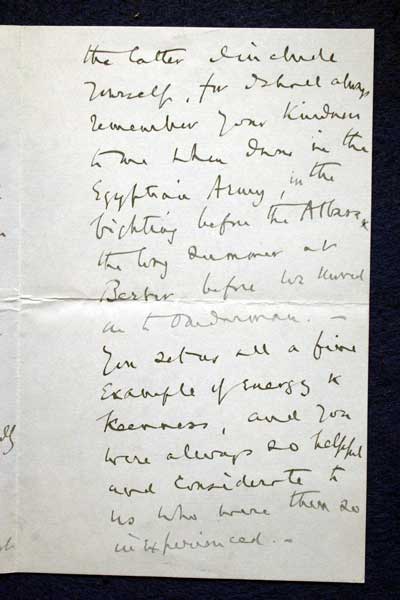 the latter I include
yourself, for I shall always
remember your kindness
to me when I was in the
Egyptian Army, in the
fighting before the Atbara &
the long summer at
Berber before we moved
on to Omdurman. –
You set us all a fine
example of energy &
keenness, and you
were always so helpful
and considerate to
us who were then so
inexperienced. –